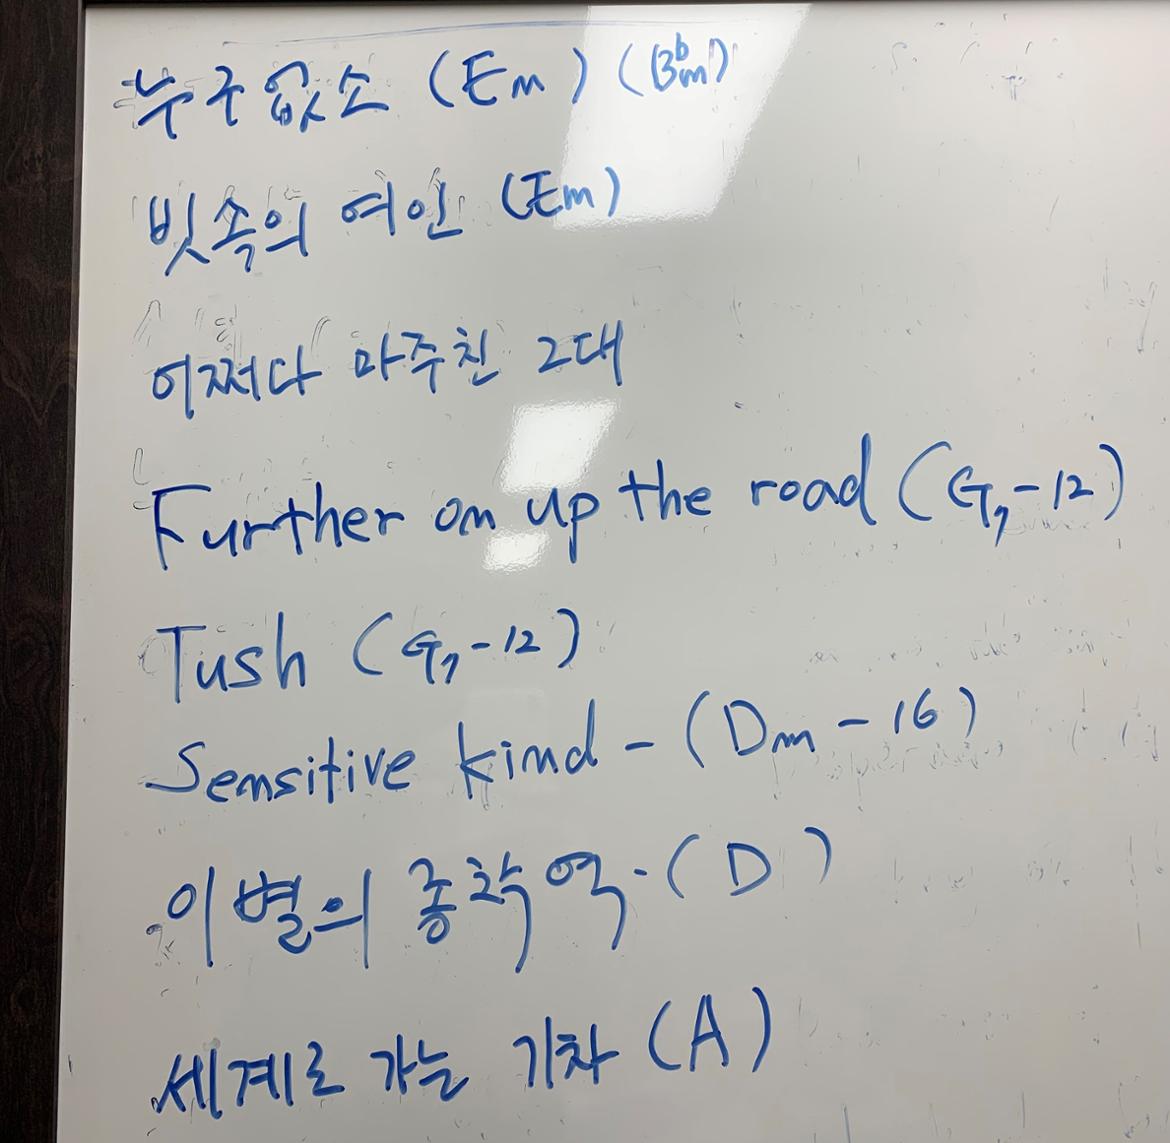 누구없소 (Em) (Bbm)
빗속의 여인 (Em)
어쩌다 마주친 그대
Further on up the road (G7-12)
Tush (G7-12)
Sensitive kind - (Dm - 16)
이별의 종착역 - (D)
세계로 가는 기차 (A)